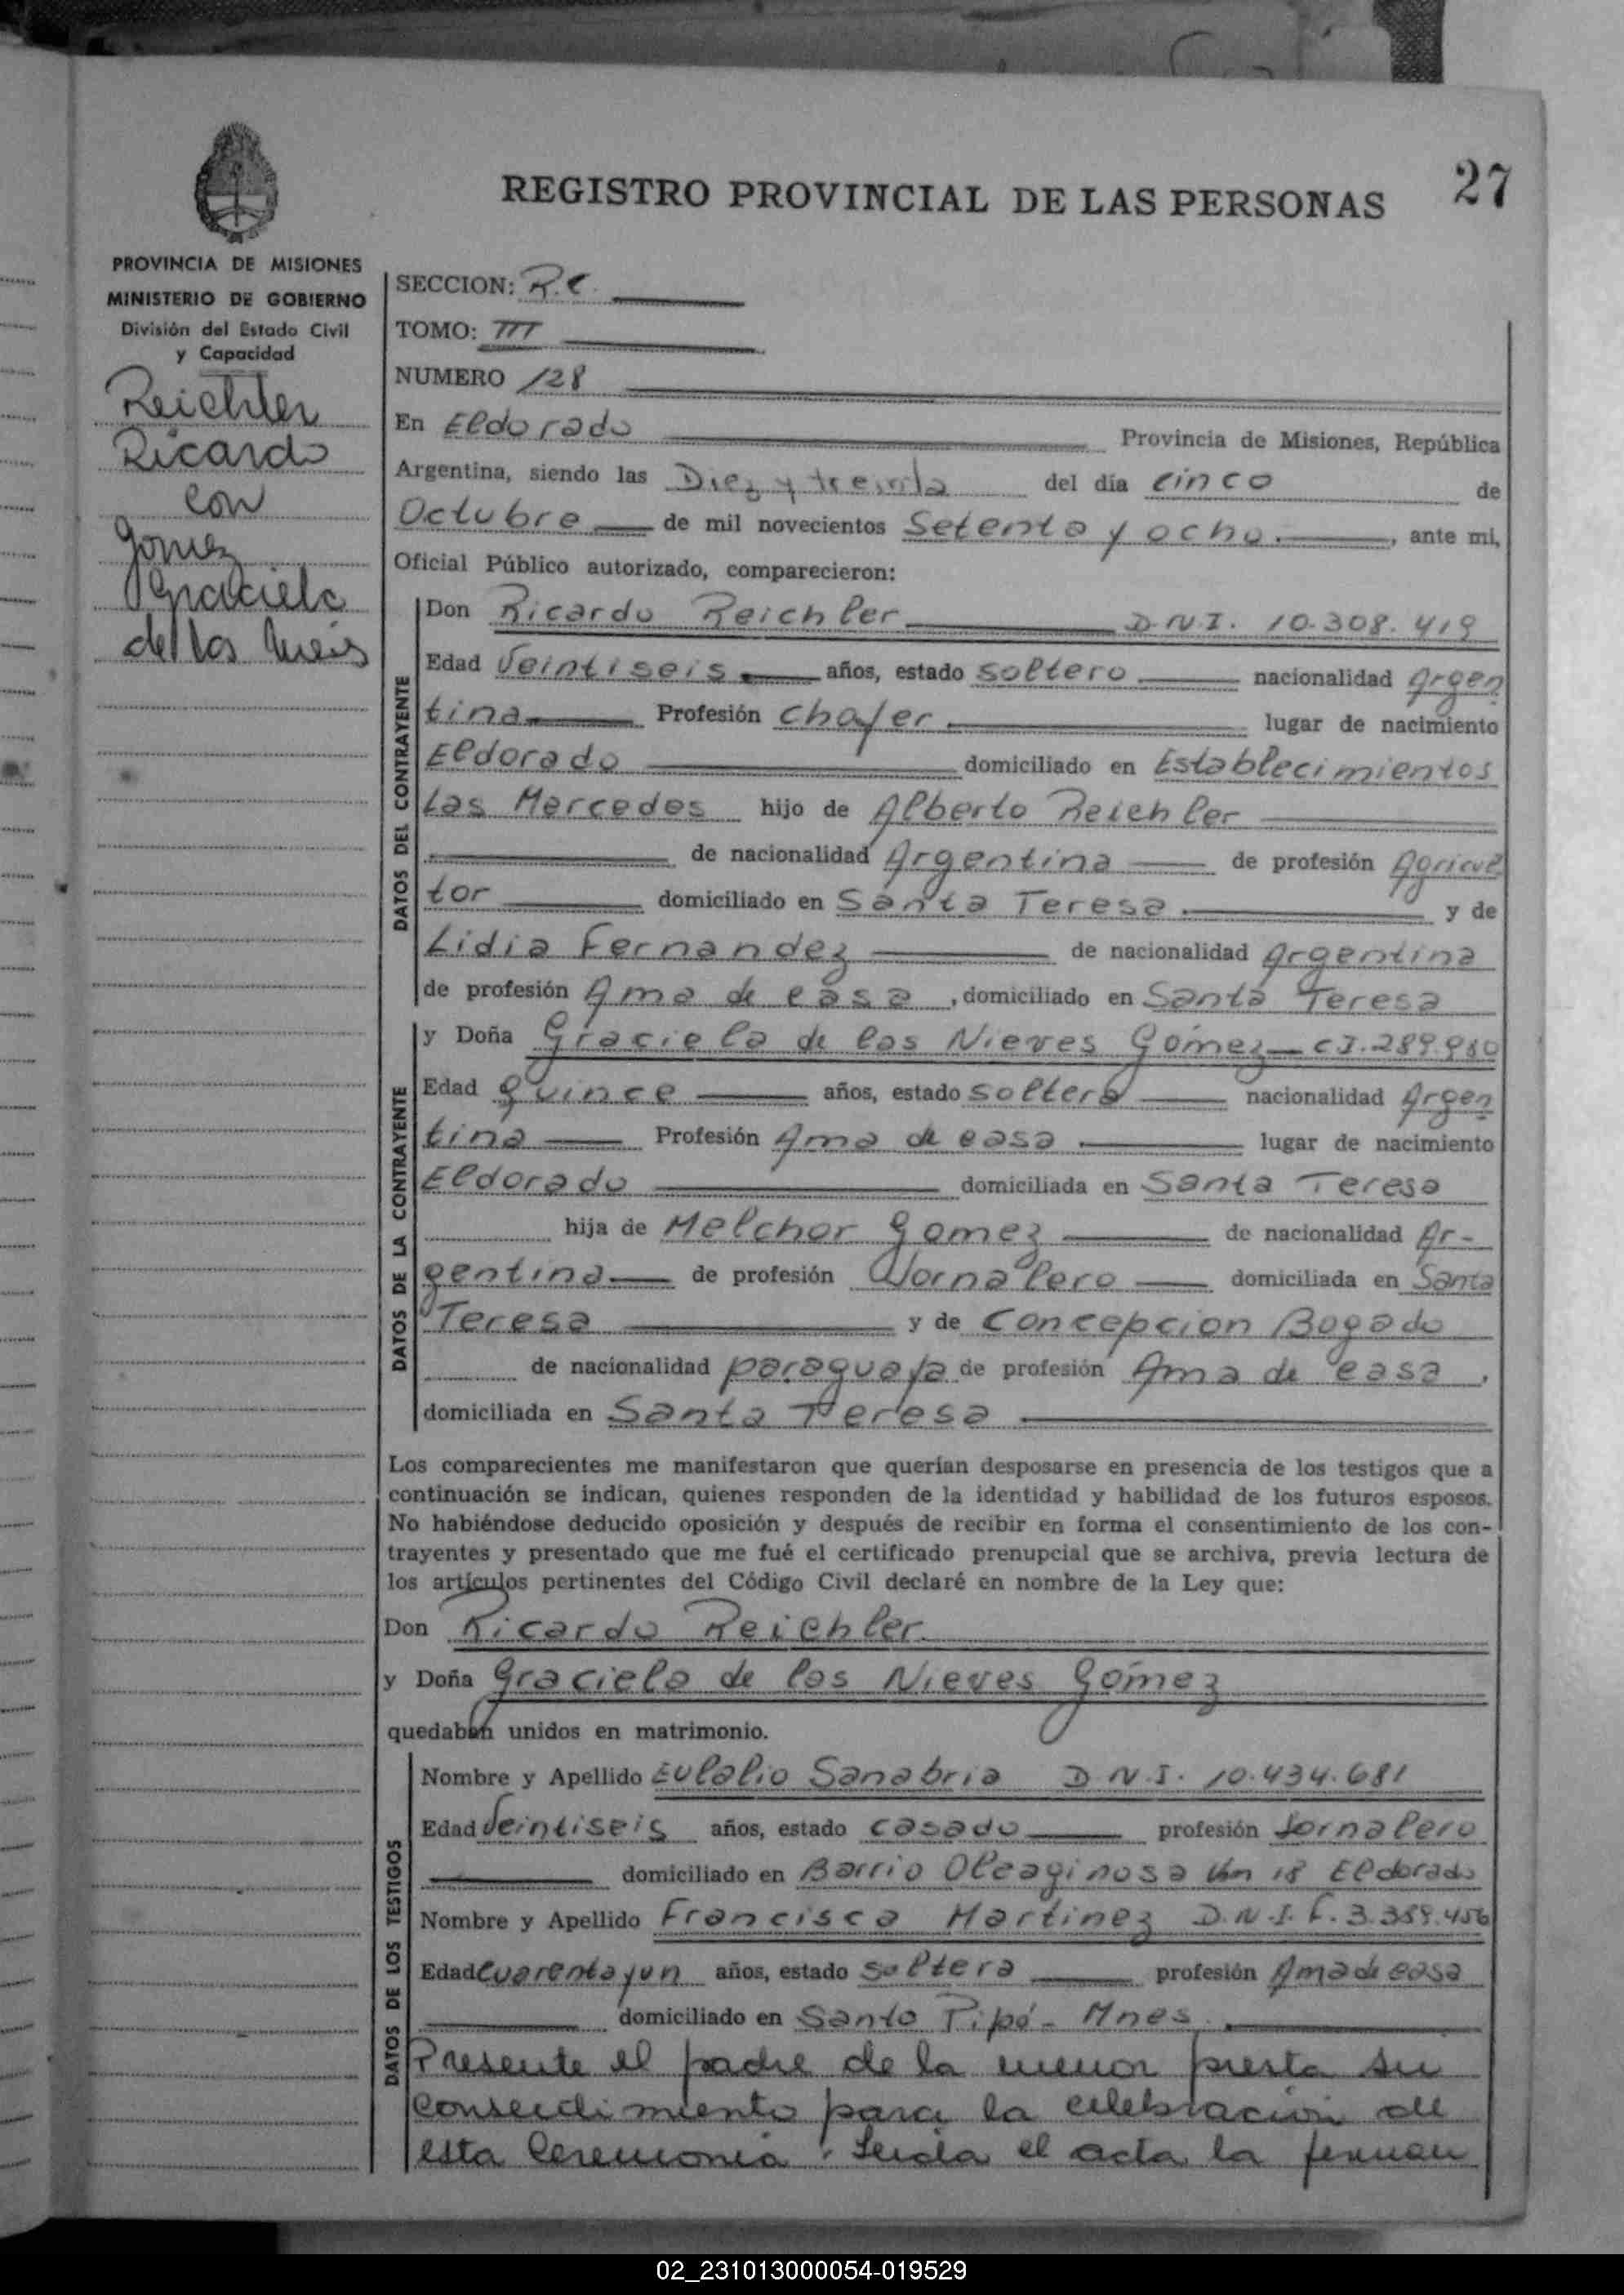 27
REGISTRO PROVINCIAL DE LAS PERSONAS
PROVINCIA DE MISIONES
MINISTERIO DE GOBIERNO
División del Estado Civil
y Capacidad
Reichler
Ricardo
con
Gomez
Graciela
de las
SECCION: R.C.
TOMO: III
NUMERO 128
En Eldorado Provincia de Misiones, República
Argentina, siendo las Diez y treinta del día cinco de
Octubre de mil novecientos Setenta y ocho, ante mi,
Oficial Público autorizado, comparecieron:
DATOS DEL CONTRAYENTE
Don Ricardo Reichler D.N.I. 10.308.419
Edad Veintiseis años, estado soltero nacionalidad Argen
tina Profesión chofer lugar de nacimiento
Eldorado domiciliado en Establecimientos
Las Mercedes hijo de Alberto Reichler
de nacionalidad Argentina de profesión Agricul
tor domiciliado en Santa Teresa y de
Lidia Fernandez de nacionalidad Argentina
de profesión Ama de casa, domiciliado en Santa Teresa
DATOS DE LA CONTRAYENTE
y Doña Graciela de las Nieves Gómez C.I. 289.980
Edad quince años, estado soltera nacionalidad Argen
tina Profesión Ama de casa lugar de nacimiento
Eldorado domiciliada en Santa Teresa
hija de Melchor Gomez de nacionalidad Ar-
gentina de profesión Jornalero domiciliada en Santa
Teresa y de Concepcion Bogado
de nacionalidad paraguaya de profesión Ama de casa,
domiciliada en Santa Teresa
Los comparecientes me manifestaron que querían desposarse en presencia de los testigos que a
continuación se indican, quienes responden de la identidad y habilidad de los futuros esposos.
No habiéndose deducido oposición y después de recibir en forma el consentimiento de los con-
trayentes y presentado que me fué el certificado prenupcial que se archiva, previa lectura de
los artículos pertinentes del Código Civil declaré en nombre de la Ley que:
Don Ricardo Reichler
y Doña Graciela de las Nieves Gómez
quedaban unidos en matrimonio.
DATOS DE LOS TESTIGOS
Nombre y Apellido Eulalio Sanabria D.N.I. 10.434.681
Edad Veintiseis años, estado casado profesión Jornalero
domiciliado en Barrio Oleaginosa Km 18 Eldorado
Nombre y Apellido Francisca Martinez D.N.I. F. 3.359.456
Edad cuarenta y un años, estado soltera profesión Ama de casa
domiciliado en Santo Pipó - Mnes.
Presente el padre de la menor presta su
consentimiento para la celebracion de
esta ceremonia. Leida el acta la firman
02_231013000054-019529